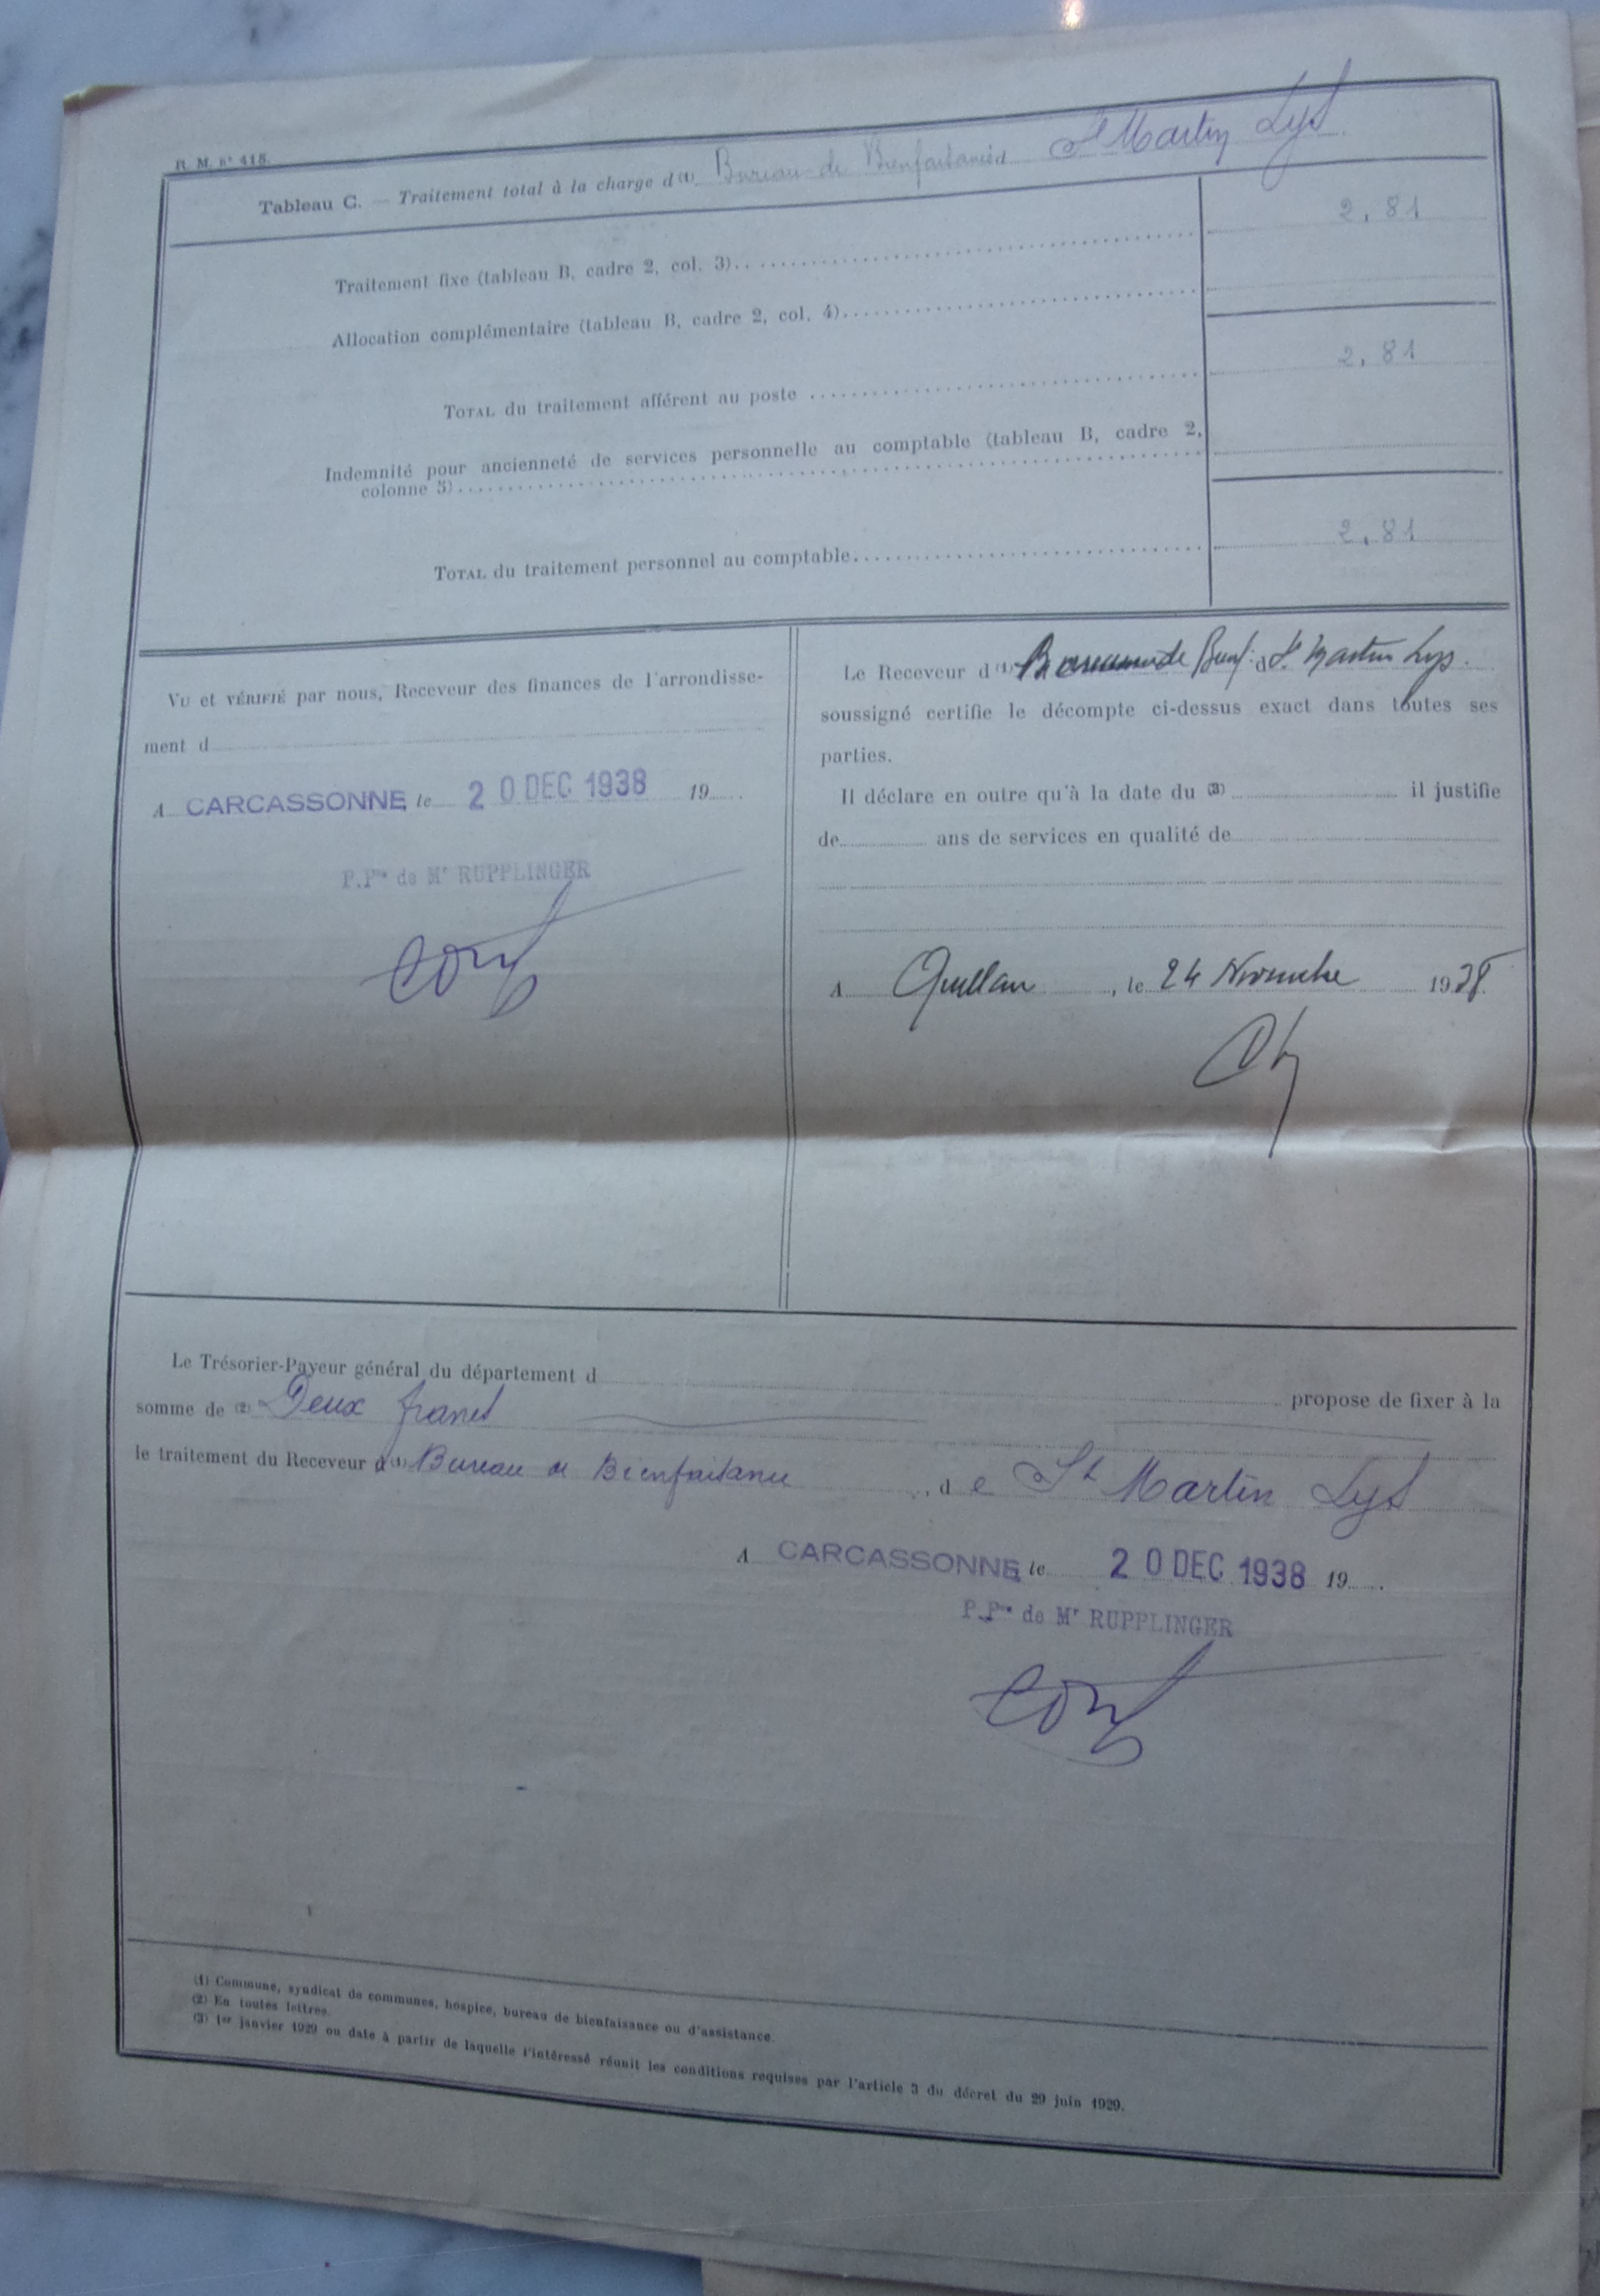 R. M. n° 415.
Tableau C. — Traitement total à la charge d (1) Bureau de Bienfaisance d St Martin Lys
Traitement fixe (tableau B, cadre 2, col. 3) 2,81
Allocation complémentaire (tableau B, cadre 2, col. 4)
TOTAL du traitement afférent au poste 2,81
Indemnité pour ancienneté de services personnelle au comptable (tableau B, cadre 2,
colonne 5)
TOTAL du traitement personnel au comptable 2,81
VU et VÉRIFIÉ par nous, Receveur des finances de l'arrondisse-
ment d
A CARCASSONNE, le 20 DEC 1938 19
P.Pon de Mr RUPPLINGER
Le Receveur d (1) Bureau de Bienf. d St Martin Lys.
soussigné certifie le décompte ci-dessus exact dans toutes ses
parties.
Il déclare en outre qu'à la date du (3) il justifie
de ans de services en qualité de
A Quillan, le 24 Novembre 1938.
Le Trésorier-Payeur général du département d propose de fixer à la
somme de (2) Deux francs
le traitement du Receveur d (1) Bureau de Bienfaisance, de St Martin Lys
A CARCASSONNE, le 20 DEC 1938 19
P.Pon de Mr RUPPLINGER
(1) Commune, syndicat de communes, hospice, bureau de bienfaisance ou d'assistance.
(2) En toutes lettres.
(3) 1er janvier 1929 ou date à partir de laquelle l'intéressé réunit les conditions requises par l'article 3 du décret du 29 juin 1929.